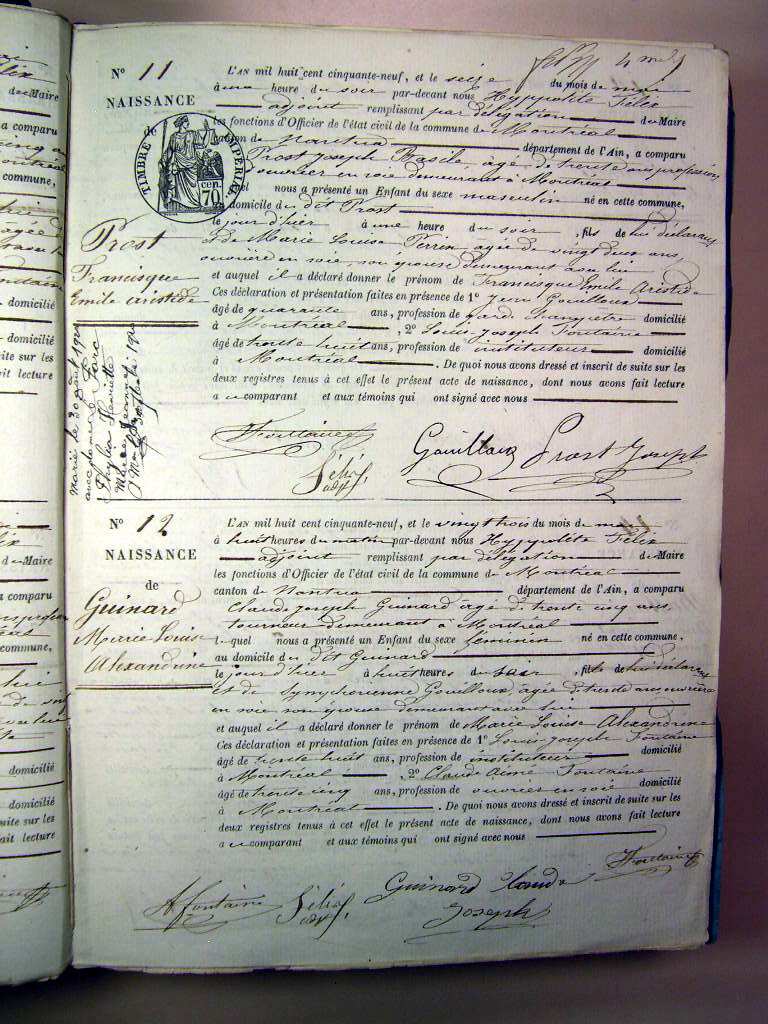 N° 11
NAISSANCE
de
TIMBRE IMPÉRIAL
70 cen.
Prost
Francisque
Emile aristide
marié le 30 août 1924
avec
L'AN mil huit cent cinquante-neuf, et le seize du mois de mai
à une heure du soir par-devant nous Hyppolite Félix
adjoint remplissant par délégation du Maire
les fonctions d'Officier de l'état civil de la commune de Montréal
canton de Nantua département de l'Ain, a comparu
Prost Joseph Basile, agé de trente ans profession
d'ouvrier en soie demeurant à Montréal
lequel nous a présenté un Enfant du sexe masculin né en cette commune,
au domicile du dit Prost
le jour d'hier à une heure du soir, fils de lui déclarant
et de Marie Louise Perrin agée de vingt deux ans,
ouvrière en soie son épouse demeurant avec lui
et auquel il a déclaré donner le prénom de Francisque Emile Aristide
Ces déclaration et présentation faites en présence de 1° Jean Gouilloux
âgé de quarante ans, profession de garde champêtre domicilié
à Montréal, 2° Louis Joseph Fontaine
âgé de trente huit ans, profession de instituteur domicilié
à Montréal. De quoi nous avons dressé et inscrit de suite sur les
deux registres tenus à cet effet le présent acte de naissance, dont nous avons fait lecture
au comparant et aux témoins qui ont signé avec nous
Fontaine
Félix
adjt
Gouilloux
Prost Joseph
N° 12
NAISSANCE
de
Guinard
Marie Louise
Alexandrine
L'AN mil huit cent cinquante-neuf, et le vingt trois du mois de mai
à huit heures du matin par-devant nous Hyppolite Félix
adjoint remplissant par délégation du Maire
les fonctions d'Officier de l'état civil de la commune de Montréal
canton de Nantua département de l'Ain, a comparu
Claude Joseph Guinard agé de trente cinq ans,
tourneur demeurant à Montréal
lequel nous a présenté un Enfant du sexe féminin né en cette commune,
au domicile du dit Guinard
le jour d'hier à huit heures du soir, fille de lui déclarant
et de Symphorienne Gouilloux, agée de trente ans ouvrière
en soie son épouse demeurant avec lui
et auquel il a déclaré donner le prénom de Marie Louise Alexandrine
Ces déclaration et présentation faites en présence de 1° Louis Joseph Fontaine
âgé de trente huit ans, profession de instituteur domicilié
à Montréal, 2° Claude Aimé Fontaine
âgé de trente cinq ans, profession de ouvrier en soie domicilié
à Montréal. De quoi nous avons dressé et inscrit de suite sur les
deux registres tenus à cet effet le présent acte de naissance, dont nous avons fait lecture
au comparant et aux témoins qui ont signé avec nous
Fontaine
A fontaine
Félix
adjt
Guinard claude
Joseph